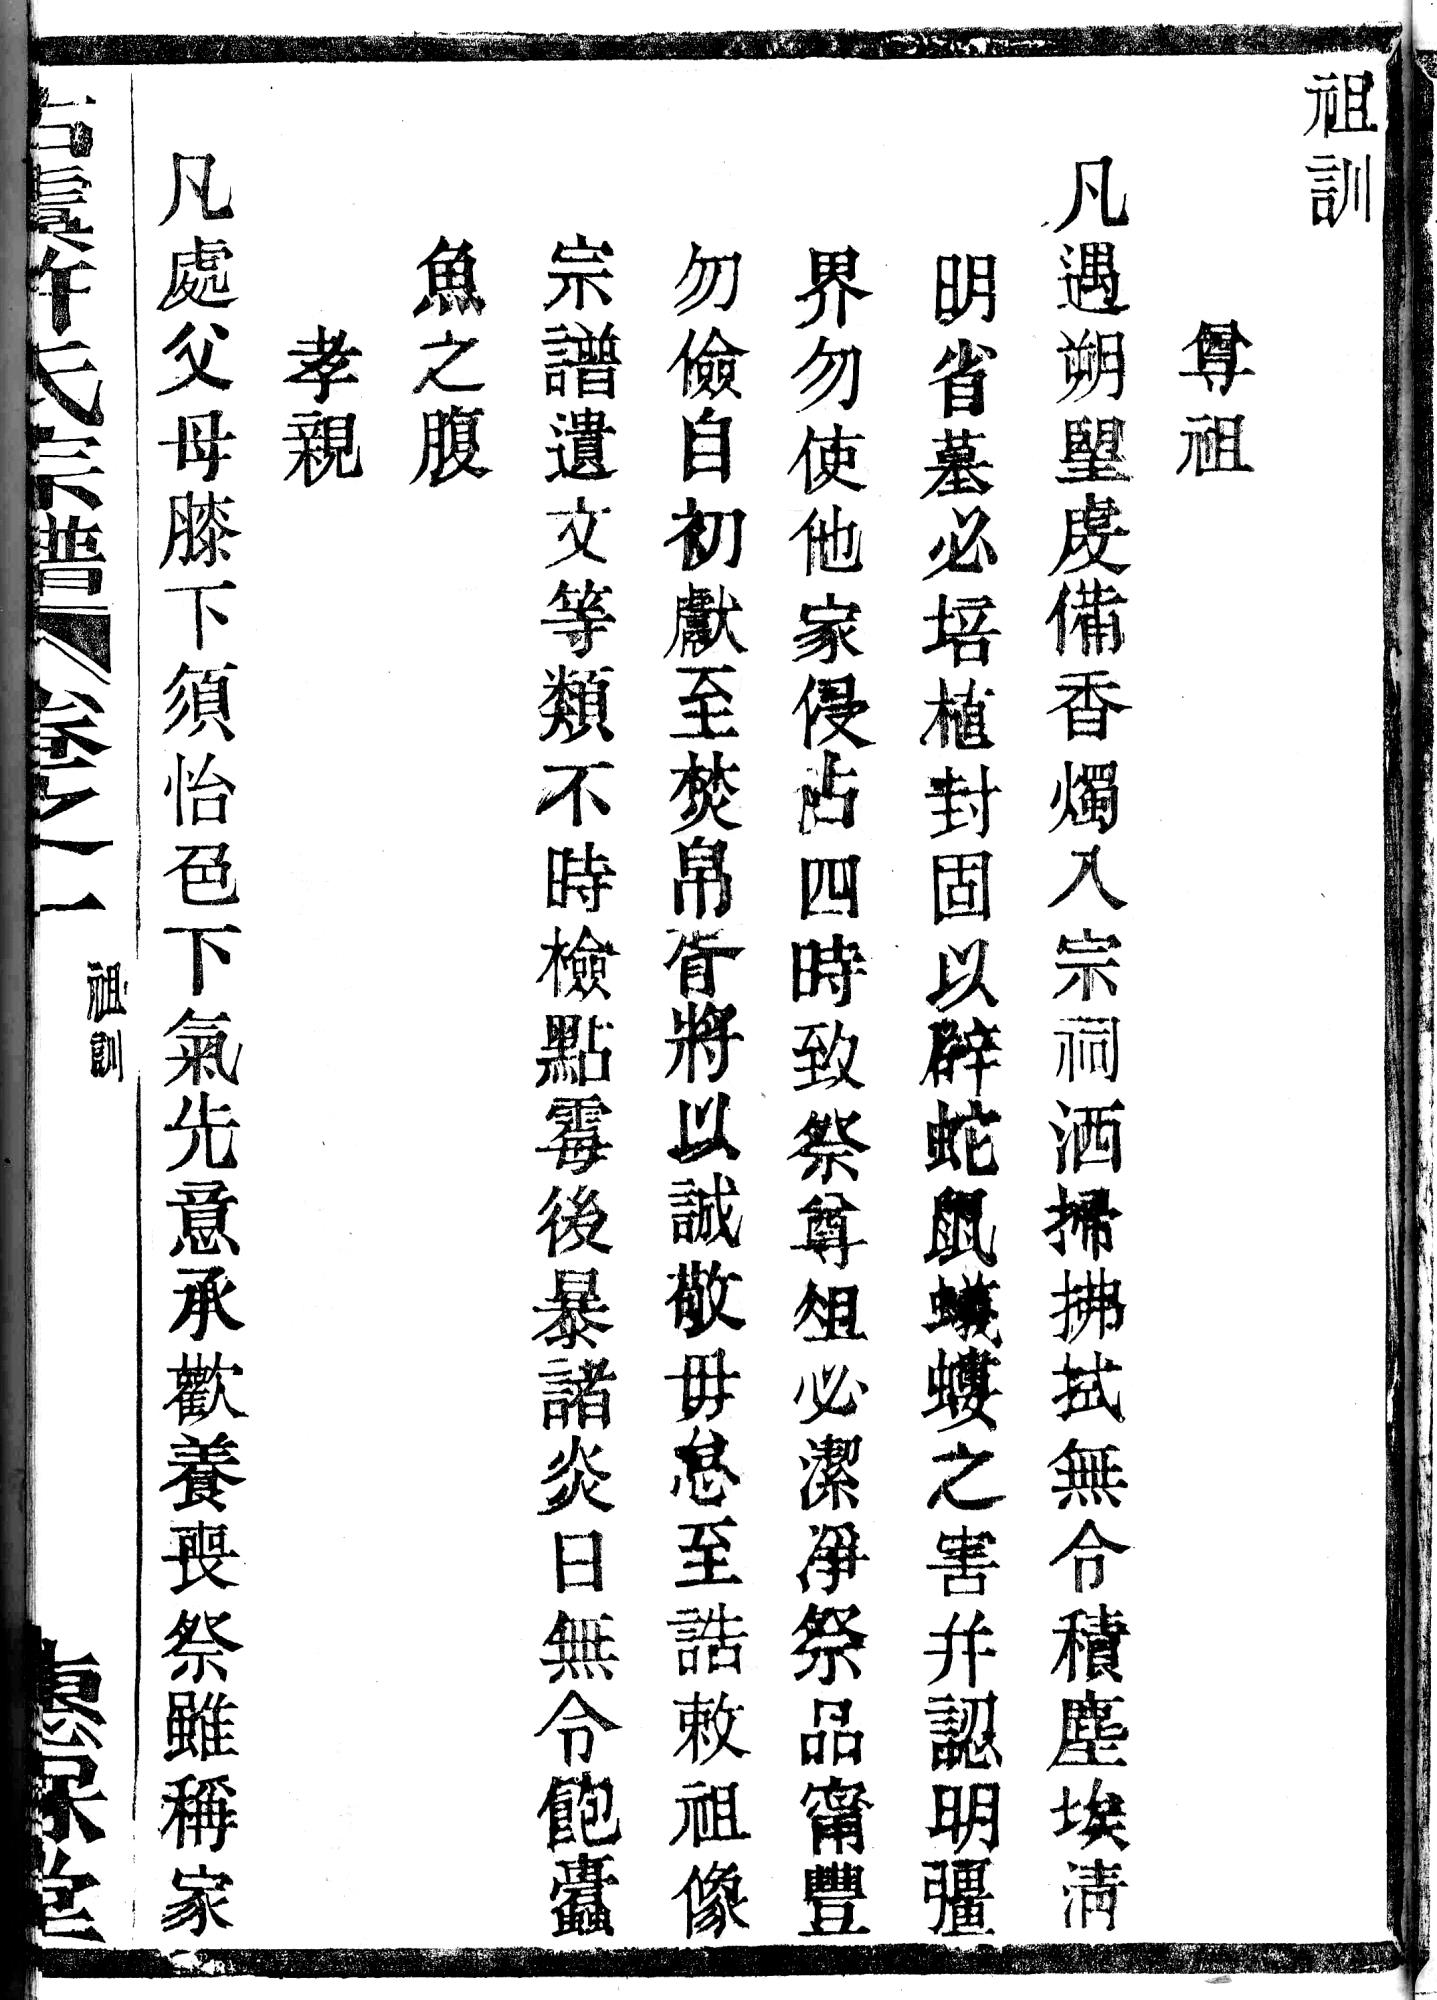 祖訓
尊祖
凡遇朔朢虔備香燭入宗祠洒掃拂拭無令積塵埃淸
明省墓必培植封固以辟蛇鼠蟻螻之害幷認明疆
界勿使他家侵佔四時致祭尊俎必潔淨祭品甯豐
勿儉自初獻至焚帛皆將以誠敬毋怠至誥敕祖像
宗譜遺文等類不時檢點霉後暴諸炎日無令飽蠹
魚之腹
孝親
凡處父母膝下須怡色下氣先意承歡養喪祭雖稱家
許氏宗譜 卷之一
祖訓
堂